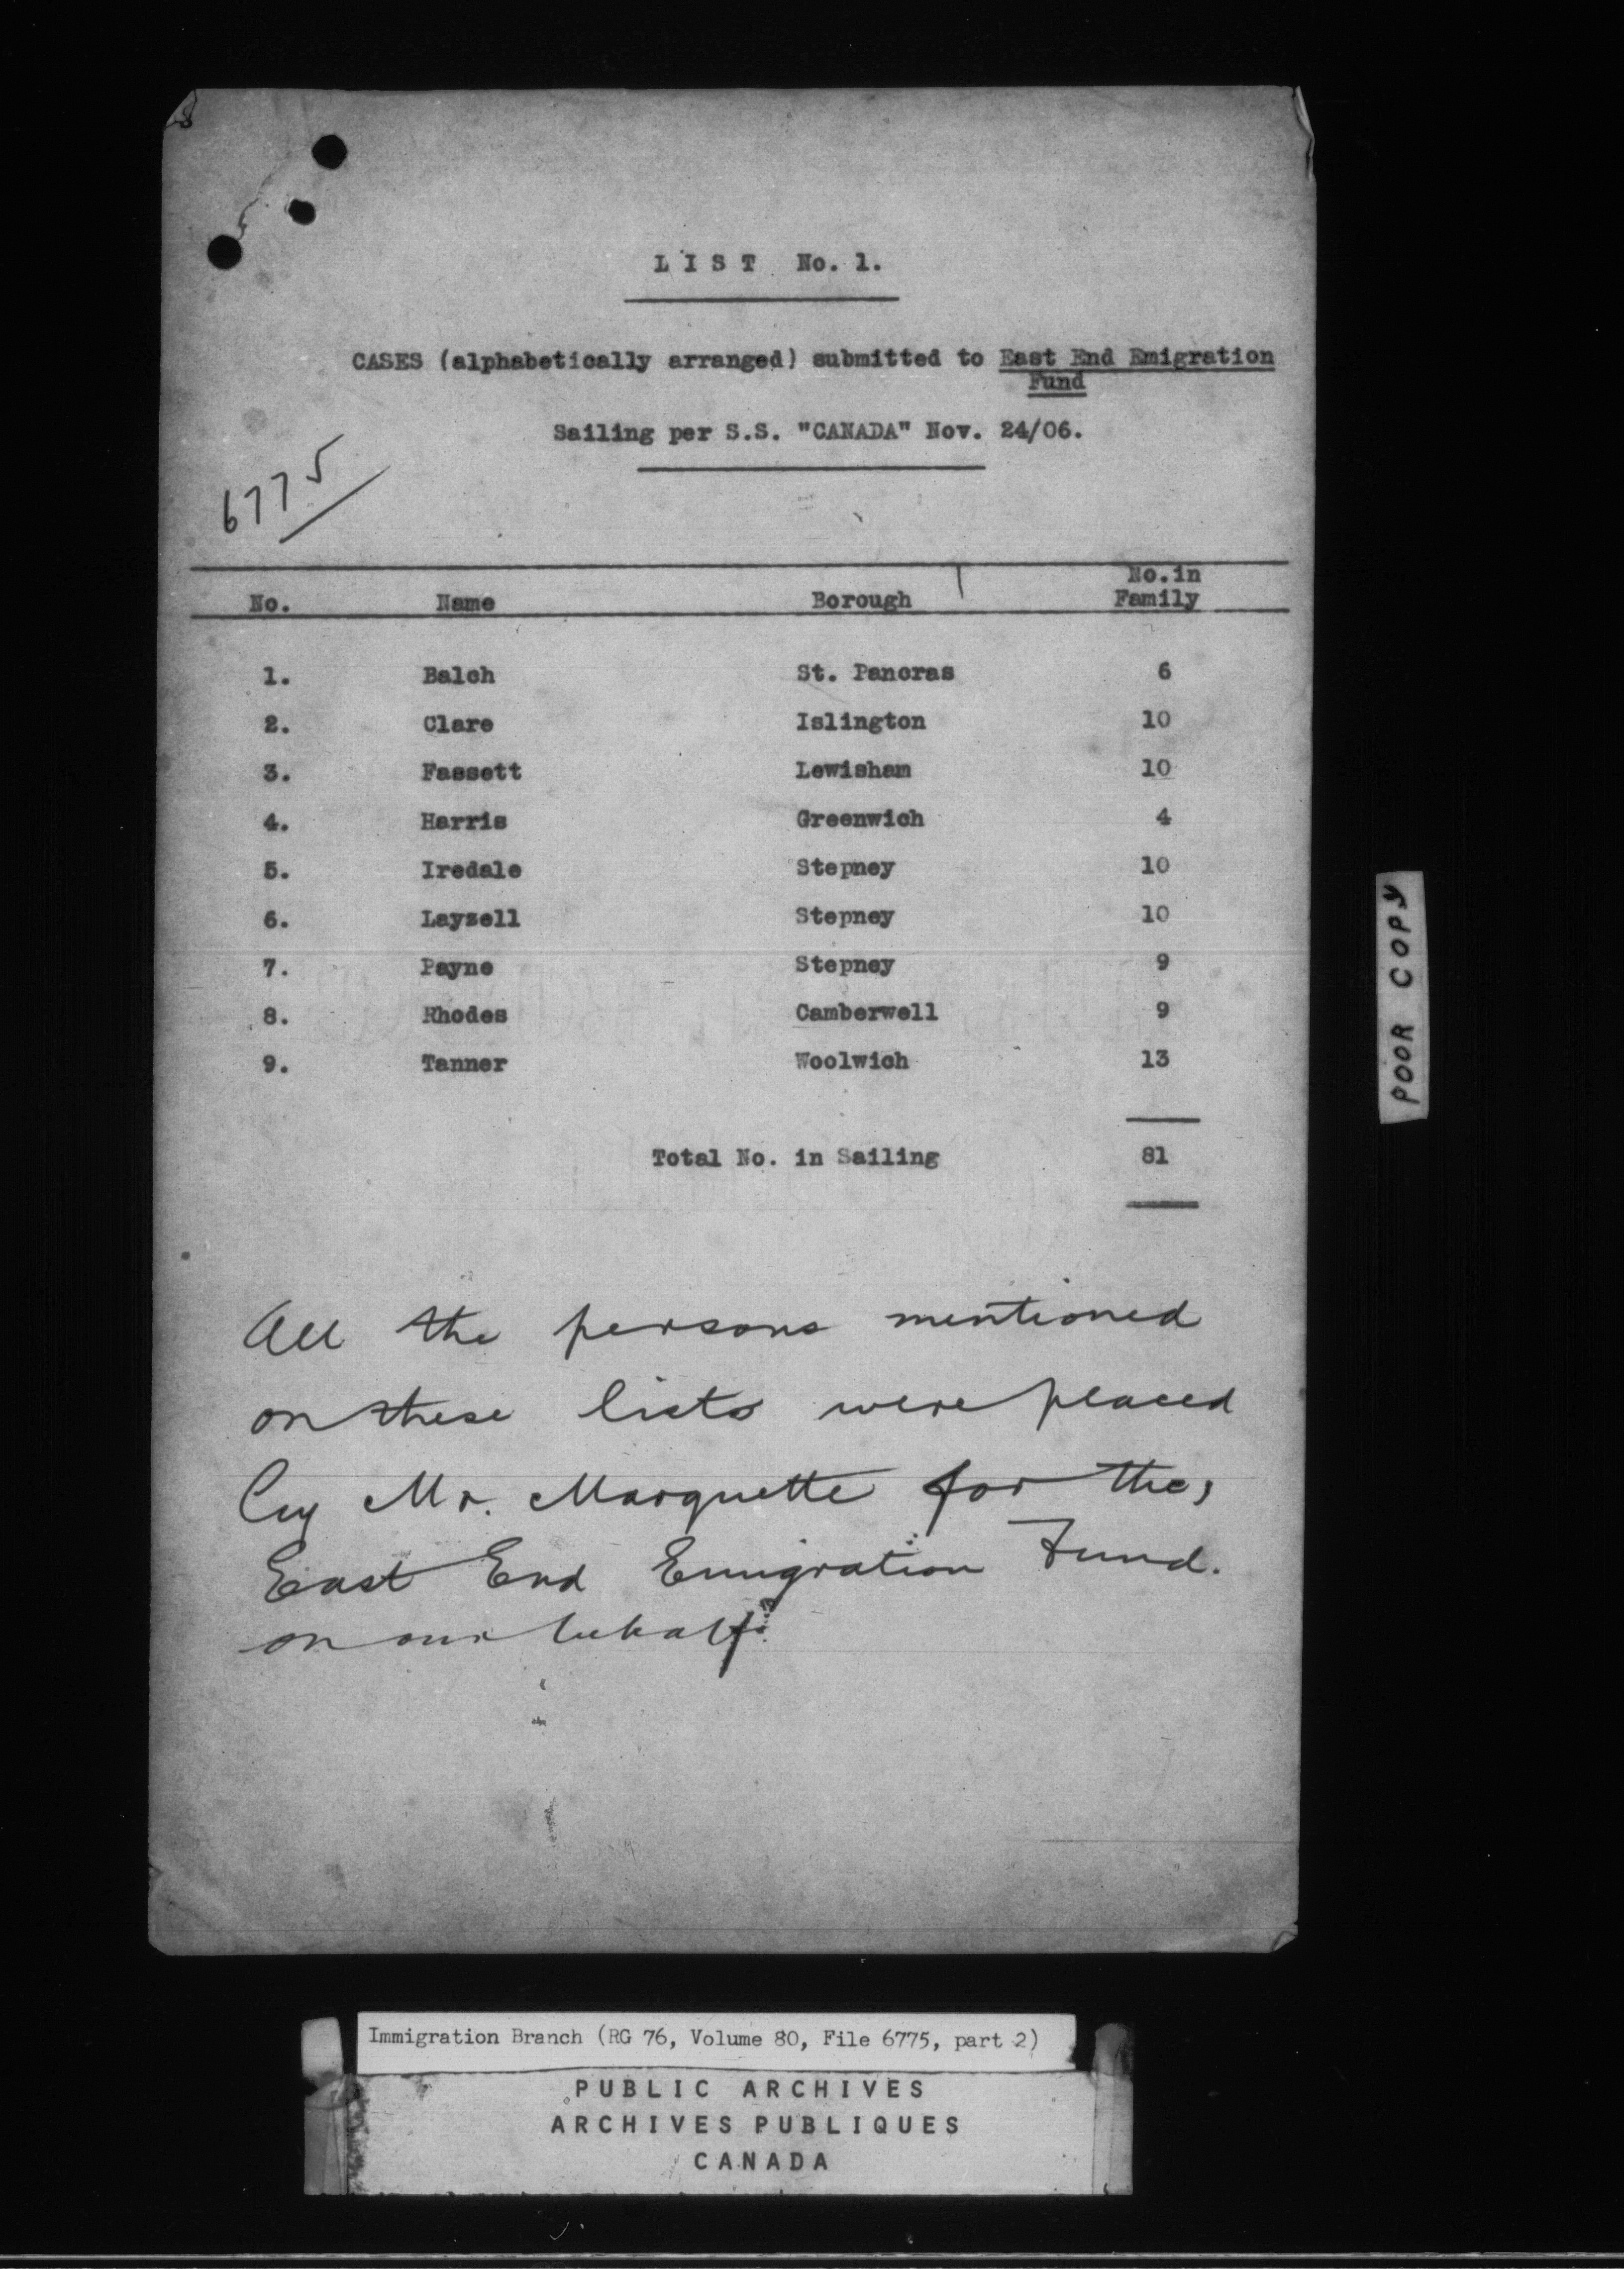 LIST No. 1.
CASES (alphabetically arranged) submitted to East End Emigration
Fund
Sailing per S.S. "CANADA" Nov. 24/06.
6775
No. Name Borough No. in Family
1. Balch St. Pancras 6
2. Clare Islington 10
3. Fassett Lewisham 10
4. Harris Greenwich 4
5. Iredale Stepney 10
6. Layzell Stepney 10
7. Payne Stepney 9
8. Rhodes Camberwell 9
9. Tanner Woolwich 13
Total No. in Sailing 81
All the persons mentioned
on these lists were placed
by Mr. Marquette for the
East End Emigration Fund.
on our behalf.
POOR COPY
Immigration Branch (RG 76, Volume 80, File 6775, part 2)
PUBLIC ARCHIVES
ARCHIVES PUBLIQUES
CANADA